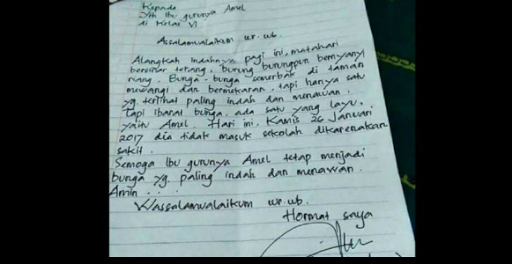 Kepada
Yth Ibu gurunya Amel
di Kelas VI
Assalamualaikum wr. wb.
Alangkah indahnya pagi ini, matahari
bersinar terang, burung burungpun bernyanyi
riang. Bunga-bunga semerbak di taman
mewangi dan bermekaran, tapi hanya satu
yg terlihat paling indah dan menawan.
Tapi ibarat bunga, ada satu yang layu,
yaitu Amel. Hari ini, Kamis 26 Januari
2017 dia tidak masuk sekolah dikarenakan
sakit.
Semoga Ibu gurunya Amel tetap menjadi
bunga yg. paling indah dan menawan.
Amin . . .
Wassalamualaikum wr. wb.
Hormat saya